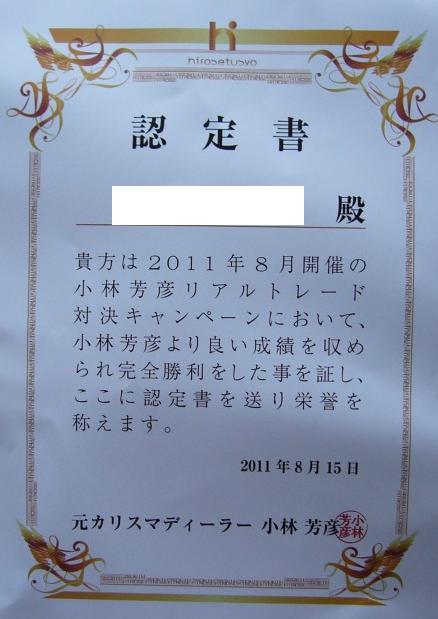 hi
hirosetusyo
認定書
殿
貴方は2011年8月開催の
小林芳彦リアルトレード
対決キャンペーンにおいて、
小林芳彦より良い成績を収め
られ完全勝利をした事を証し、
ここに認定書を送り栄誉を
称えます。
2011年8月15日
元カリスマディーラー 小林 芳彦
小林
芳彦